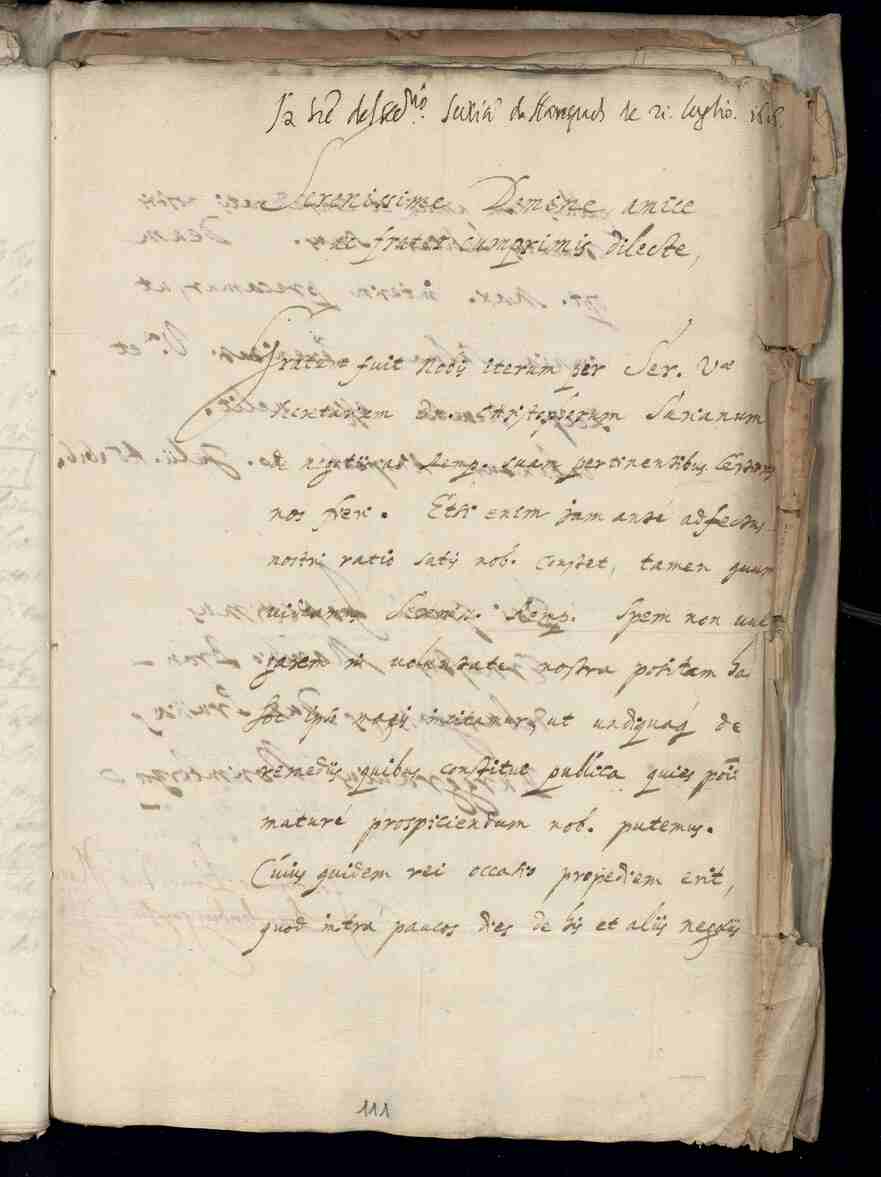 del Sec.rio Suria.o da de 21. luglio. 1616
Serenissime Domine amice
ac frater cumprimis dilecte,
Gratum fuit nobis iterum per Ser. V.ae
Secretarium Dn. Christophorum Surianum
de negotiis ad Remp. suam pertinentibus certiores
nos fieri. Etsi enim jam anté adfectus
nostri ratio satis nob. constet, tamen quum
videamus Sereniss. Remp. spem non vul
garem in voluntate nostra positam ha
hoc ipso magis incitamur, ut undiquaq́ de
remediis quibus constitui publica quies
maturé prospiciendum nob. putemus.
Cuius quidem rei occasio propediem erit,
quod intrá paucos dies de his et aliis negotiis
111